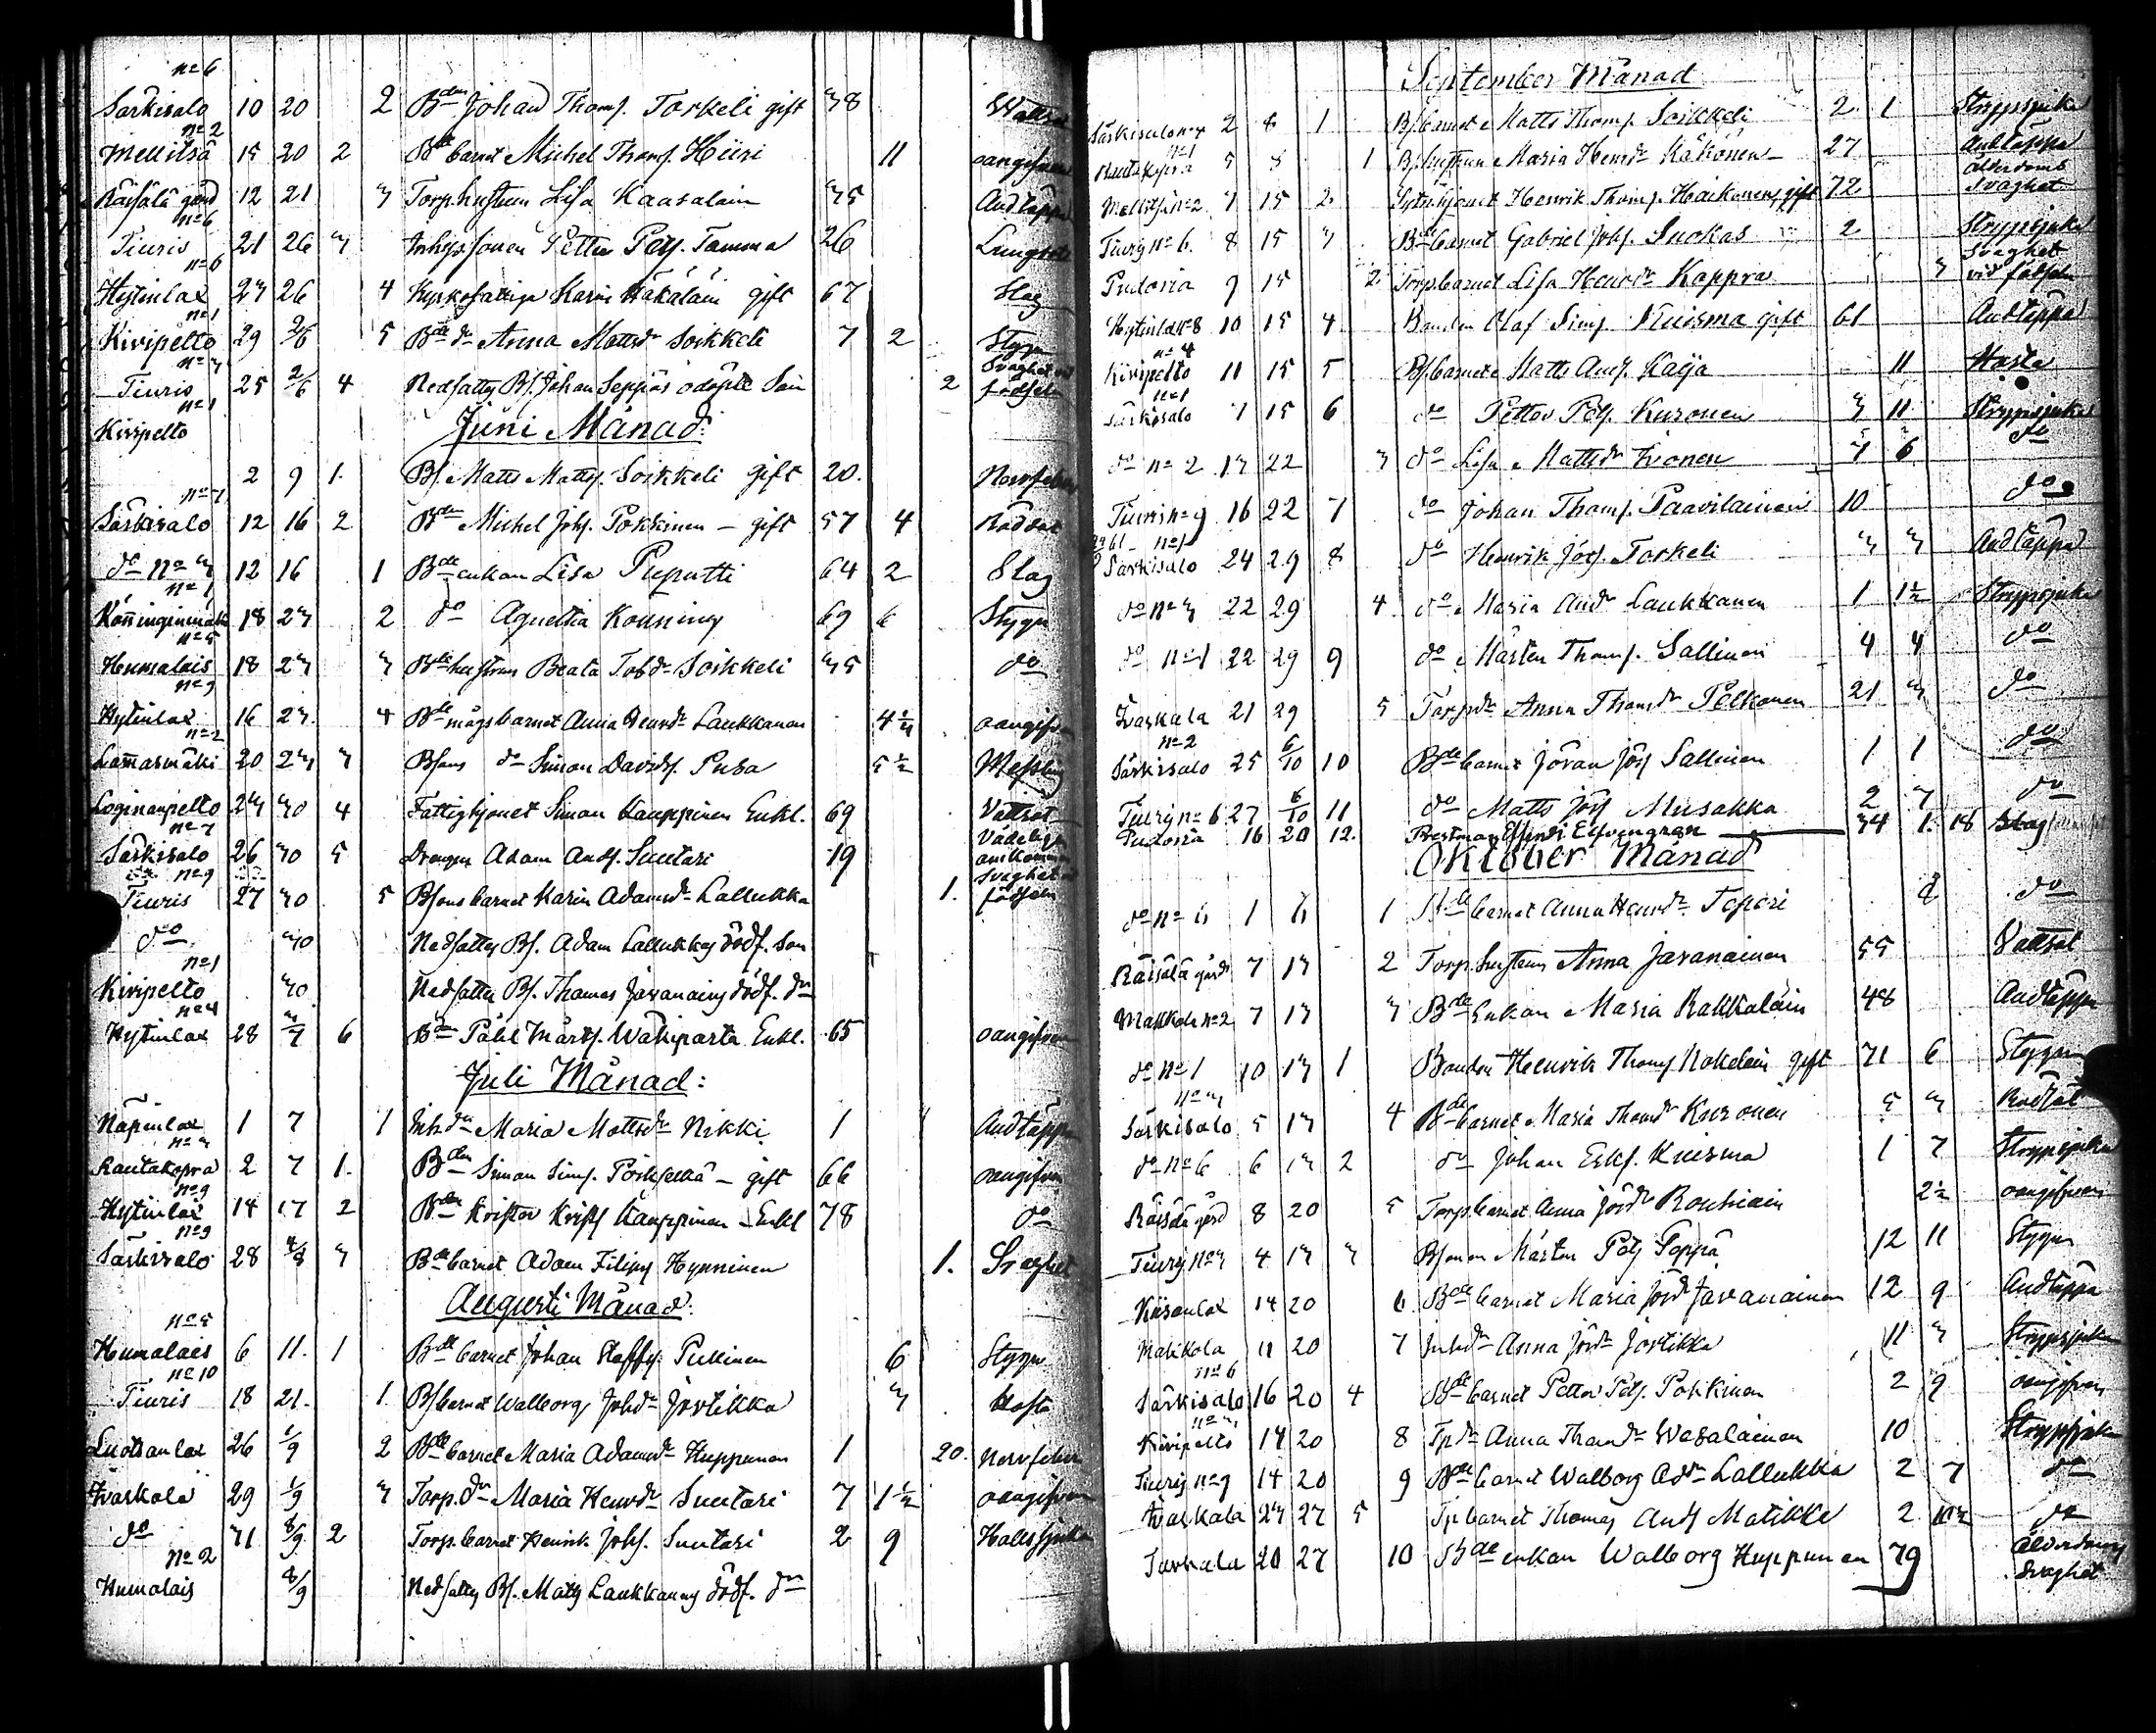 No 6
Särkisalo 10 20 2 Bden Johan Thoms. Torkeli gift 38 Wattsot
No 2
Mellitsä 15 20 2 Bde barnet Michel Thoms. Hiiri 11 oangifven
Räisälä gård 12 21 3 Torp.hustrun Lisa Kaasalain 35 Andtäppa
No 6
Tiuris 21 26 3 Inhys sonen Petter Pets. Tamma 26 Lungsot
No 6
Hytinlax 23 26 4 Kyrkofattiga Karin Häkäläin gift 67 Slag
No 1
Kivipelto 29 2/6 5 Bde dr Anna Mattsdr Soikkeli 7 2 Stygn
No 3
Tiuris 25 2/6 4 Nedsatte Bs. Johan Seppäs odöpte Son 2 Svaghet vid födseln
No 1
Kivipelto
Juni Månad:
2 9 1 Bs. Matts Matts. Soikkeli gift 20. Nervfeber
No 7
Särkisalo 12 16 2 Bden Michel Johs. Pokkinen – gift 57 4 Rödsot
do No 3 12 16 1 Bde enkan Lisa Puputti 64 2 Slag
No 1
18 23 2 do Agnetta Konning 69 6 Stygn
No 5
Humalais 18 23 3 Bde hustrun Beata Tobdr Soikkeli 35 do
No 9
Hytinlax 16 23 4 Bde mågs barnet Anna Henrdr Laukkanen 4 1/4 oangifven
No 2
Lammasmäki 20 23 3 Bsons do Simon Davids. Pusa 5 1/2 Messling
Loginanpelto 24 30 4 Fattighjonet Simon Kauppinen Enkl. 69 Vattsot
No 7
Särkisalo 26 30 5 Drengen Adam Ands. Suutari 19 Vådeligen omkommen
No 9
Tiuris 27 30 5 Bsons barnet Karin Adamsdr Lallukka 1. Svaghet födseln
do 30 Nedsatte Bs. Adam Lallukkas dödf. Son
No 1
Kivipelto 30 Nedsatte Bs. Thomas Javanains dödf. dr
No 4
Hytinlax 28 3/7 6 Bden Påhl Mårts. Wäkiparta Enkl. 65 oangifven
Juli Månad:
Näpinlax 1 7 1 Inhdr Maria Mattsdr Nikki 1 Andtäppa
No 3
Rautakopra 2 7 1. Bden Simon Sims. Pöihselkä – gift 66 oangifven
No 9
Hytinlax 14 17 2 Bden Krister Krists. Kauppinen – Enkl 78 do
No 9
Särkisalo 28 4/8 3 Bde barnet Adam Filips Hynninen 1. Svaghet
Augusti Månad:
No 5
Humalais 6 11. 1 Bde barnet Johan Staffs. Pukinen 6 Stygn
No 10
Tiuris 18 21. 1 Bs barnet Walborg Johdr Jortikka 3 Hosta
Luotsanlax 26 1/9 2 Bde barnet Maria Adamsdr Huppunen 1 20. Nervfeber
Ivaskala 29 1/9 3 Torp.dr Maria Henrdr Suutari 7 1 1/2 oangifven
do 31 8/9 2 Torp.barnet Henrik Johs. Suutari 2 9 Halssjuka
No 2
Humalais 8/9 Nedsatte Bs. Matts Laukkanens dödf. dr
September Månad
Särkisalo No 4 2 8 1 Bs barnet Matts Thoms. Soikkeli 2 1 Strypsjuka
No 1
Rautakopra 5 8 1 Bs hustrun Maria Henrdr Käkönen 27 Andtäppa
Mellitsä No 2 7 15 2 Sytnhjonet Henrik Thoms. Haikonen gift 72 Ålderdoms Svaghet
Tiuris No 6. 8 15 3 Bde barnet Gabriel Johs. Suokas 2 Strypsjuka
Pudoria 9 15 2 Torp.barnet Lisa Henrdr Koppra 3 Svaghet vid födseln
Hytinlax No 8 10 15 4 Bonden Olof Sims Kuisma gift 61 Andtäppa
No 4
Kivipelto 11 15 5 Bs. barnet Matts Ands. Kaija 11 Hosta
No 1
Särkisalo 7 15 6 do Petter Pets. Kuronen 3 11 Strypsjuka
do No 2 13 22 3 do Lisa Mattsdr Ivonen 3 6 do
Tiuris No 9 16 22 7 do Johan Thoms. Paavilainen 10 do
No 1
Särkisalo 24 29 8 do Henrik Jörs. Torkeli 3 3 Andtäppa
do No 3 22 29 4. do Maria Anddr Laukkanen 1 1 1/2 Strypsjuka
do No 1 22 29 9 do Mårten Thoms. Sallinen 4 4 do
Ivaskala 21 29 5 Torpdr Anna Thomsdr Pelkonen 21 3 do
No 2
Särkisalo 25 6/10 10 Bde barnet Jöran Jörs Sallinen 1 1 do
Tiuris No 6 27 6/10 11 do Matts Jörs Musakka 2 7 do
Pudoria 16 20 12. Prestman Elfvengren 34 1. 18 Slag
Oktober Månad
do No 6 1 6 1 Bde barnet Anna Henrdr Topori 2 do
Räisälä gård 7 13 2 Torp.hustrun Anna Javanainen 55 Vattsot
Makkola No 2 7 13 3 Bde Enkan Maria Rakkolain 48 Andtäppa
do No 1 10 13 1 Bonden Henrik Thoms Kokolain gift 71 6 Stygn
No 3
Särkisalo 5 13 4 Bde barnet Maria Thomsdr Kuronen 5 3 Rödsot
do No 6 6 13 2 do Johan Esks. Kuisma 1 7 Strypsjuka
Räisälä gård 8 20 5 Torp.barnet Anna Jördr Rouhiain 2 1/2 oangifven
Tiuris No 3 4 13 3 Bsonen Mårten Pets Poppä 12 11 Stygn
Kiisanlax 14 20 6 Bde barnet Maria Jördr Javanainen 12 9 Andtäppa
Makkola 11 20 7 Inhdr Anna Jördr Jortikka 11 3 Strypsjuka
No 6
Särkisalo 16 20 4 Bde barnet Petter Pets. Pokkinen 2 9 oangifven
No 3
Kivipelto 14 20 8 Tpdr Anna Thomdr Wesalainen 10 Strypsjuka
Tiuris No 9 14 20 9 Bde barnet Walborg Addr Lallukka 2 7 do
Ivaskala 23 27 5 Tp barnet Thomas Ands Matikka 2 do
Tarkala 20 27 10 Bde enkan Walborg Huppunen 79 Ålderdoms Svaghet